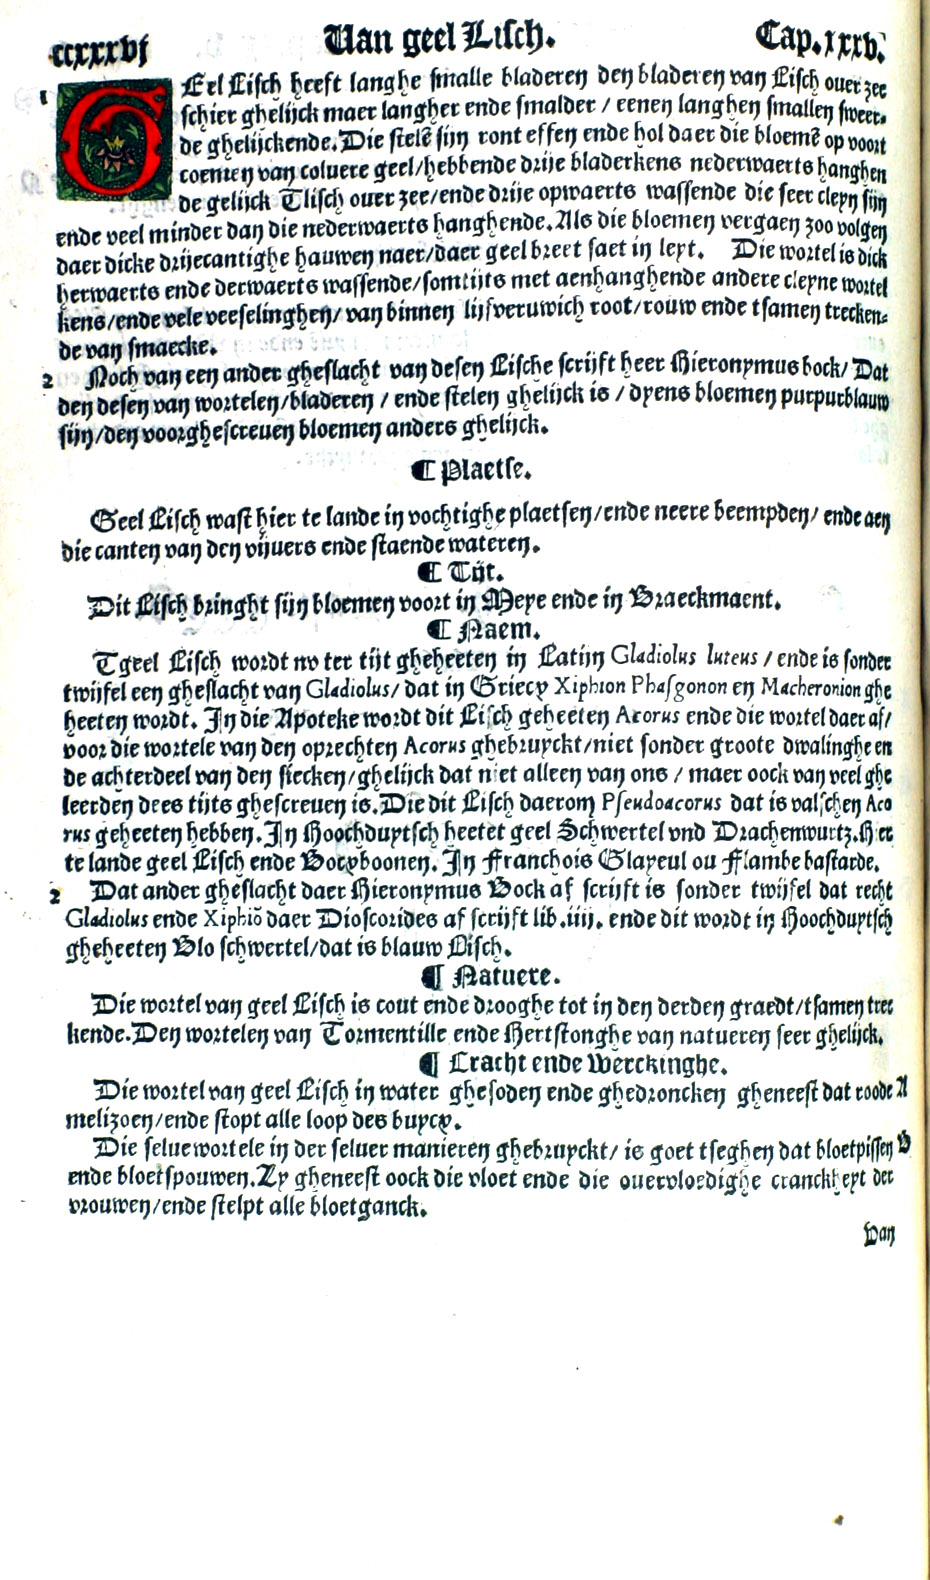 ccxxxvj Van geel Lisch. Cap.xxxv.
1 GEel Lisch heeft langhe smalle bladeren den bladeren van Lisch ouer zee
schier ghelijck maer langher ende smalder / eenen langhen smallen sweer-
de ghelijckende. Die stelē sijn ront effen ende hol daer die bloemē op voort
coemen van coluere geel/hebbende drije bladerkens nederwaerts hanghen
de gelijck Tlisch ouer zee/ende drije opwaerts wassende die seer cleyn sijn
ende veel minder dan die nederwaerts hanghende. Als die bloemen vergaen zoo volgen
daer dicke drijecantighe hauwen naer/daer geel breet saet in leyt. Die wortel is dick
herwaerts ende derwaerts wassende/somtijts met aenhanghende andere cleyne wortel
kens/ende vele veeselinghen/ van binnen lijfveruwich root/rouw ende tsamen trecken-
de van smaecke.
2 Noch van een ander gheslacht van desen Lische scrijft heer Hieronymus bock/ Dat
den desen van wortelen/bladeren / ende stelen ghelijck is / dyens bloemen purpurblauw
sijn/den voorghescreuen bloemen anders ghelijck.
¶ Plaetse.
Geel Lisch wast hier te lande in vochtighe plaetsen/ende neere beempden/ ende aen
die canten van den vijuers ende staende wateren.
¶ Tijt.
Dit Lisch bringht sijn bloemen voort in Meye ende in Braeckmaent.
¶ Naem.
Tgeel Lisch wordt nv ter tijt gheheeten in Latijn Gladiolus luteus / ende is sonder
twijfel een gheslacht van Gladiolus/ dat in Griecx Xiphion Phasgonon en Macheronion ghe
heeten wordt. In die Apoteke wordt dit Lisch geheeten Acorus ende die wortel daer af/
voor die wortele van den oprechten Acorus ghebruyckt/niet sonder groote dwalinghe en
de achterdeel van den siecken/ghelijck dat niet alleen van ons / maer oock van veel ghe
leerden dees tijts ghescreuen is. Die dit Lisch daerom Pseudoacorus dat is valschen Aco
rus geheeten hebben. In Hoochduytsch heetet geel Schwertel vnd Drachenwurtz. Hier
te lande geel Lisch ende Bocxboonen. In Franchois Glayeul ou Flambe bastarde.
2 Dat ander gheslacht daer Hieronymus Bock af scrijft is sonder twijfel dat recht
Gladiolus ende Xiphiō daer Dioscorides af scrijft lib.iiij. ende dit wordt in Hoochduytsch
gheheeten Blo schwertel/dat is blauw Lisch.
¶ Natuere.
Die wortel van geel Lisch is cout ende drooghe tot in den derden graedt/tsamen trec
kende. Den wortelen van Tormentille ende Hertstonghe van natueren seer ghelijck.
¶ Cracht ende Werckinghe.
Die wortel van geel Lisch in water ghesoden ende ghedroncken gheneest dat roode A
melizoen/ende stopt alle loop des buycx.
Die selue wortele in der seluer manieren ghebruyckt/ is goet tseghen dat bloetpissen B
ende bloetspouwen. Zy gheneest oock die vloet ende die ouervloedighe cranckheyt der
vrouwen/ende stelpt alle bloetganck.
Van